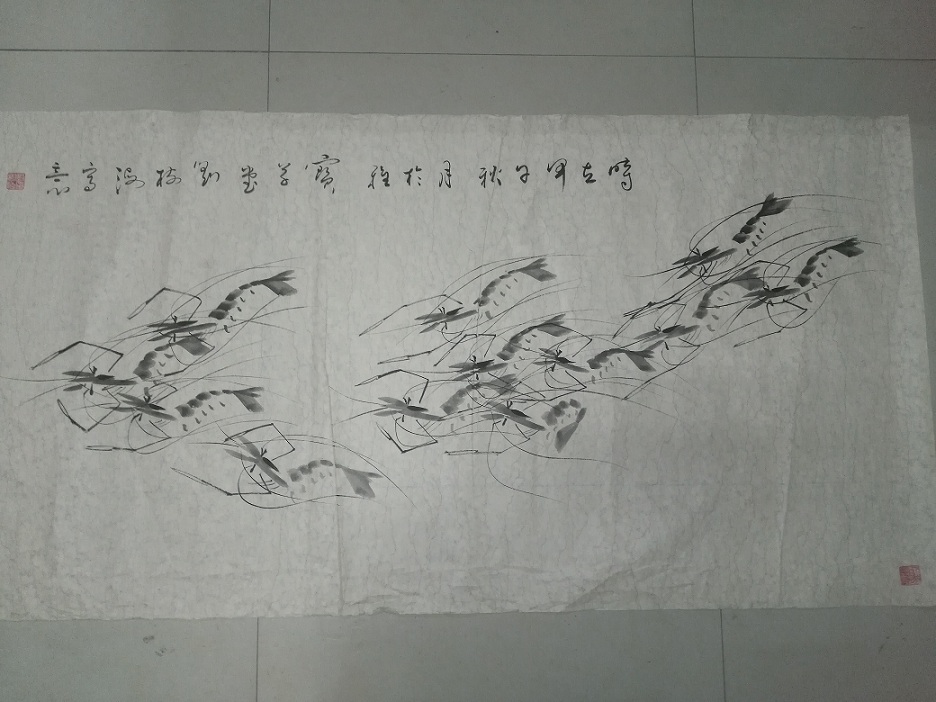 時在甲午秋月於雅寶草堂劉树海寫意